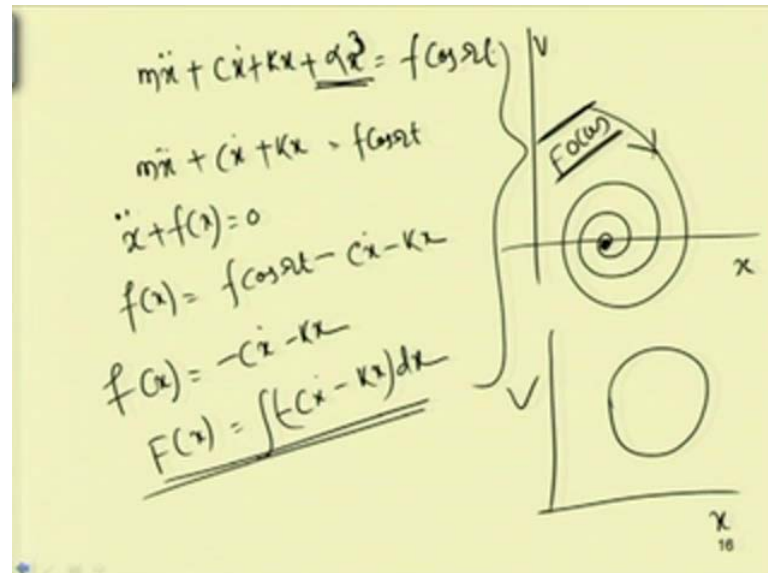 mẍ + Cẋ + Kx + αx³ = f Cos Ωt
mẍ + Cẋ + Kx = f Cos Ωt
ẍ + f(x) = 0
f(x) = f Cos Ωt - Cẋ - Kx
f(x) = -Cẋ - Kx
F(x) = ∫(-Cẋ - Kx)dx
V
Focus
x
V
x
16